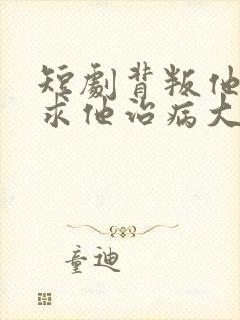 短劇背叛他
求他治病大
童迪